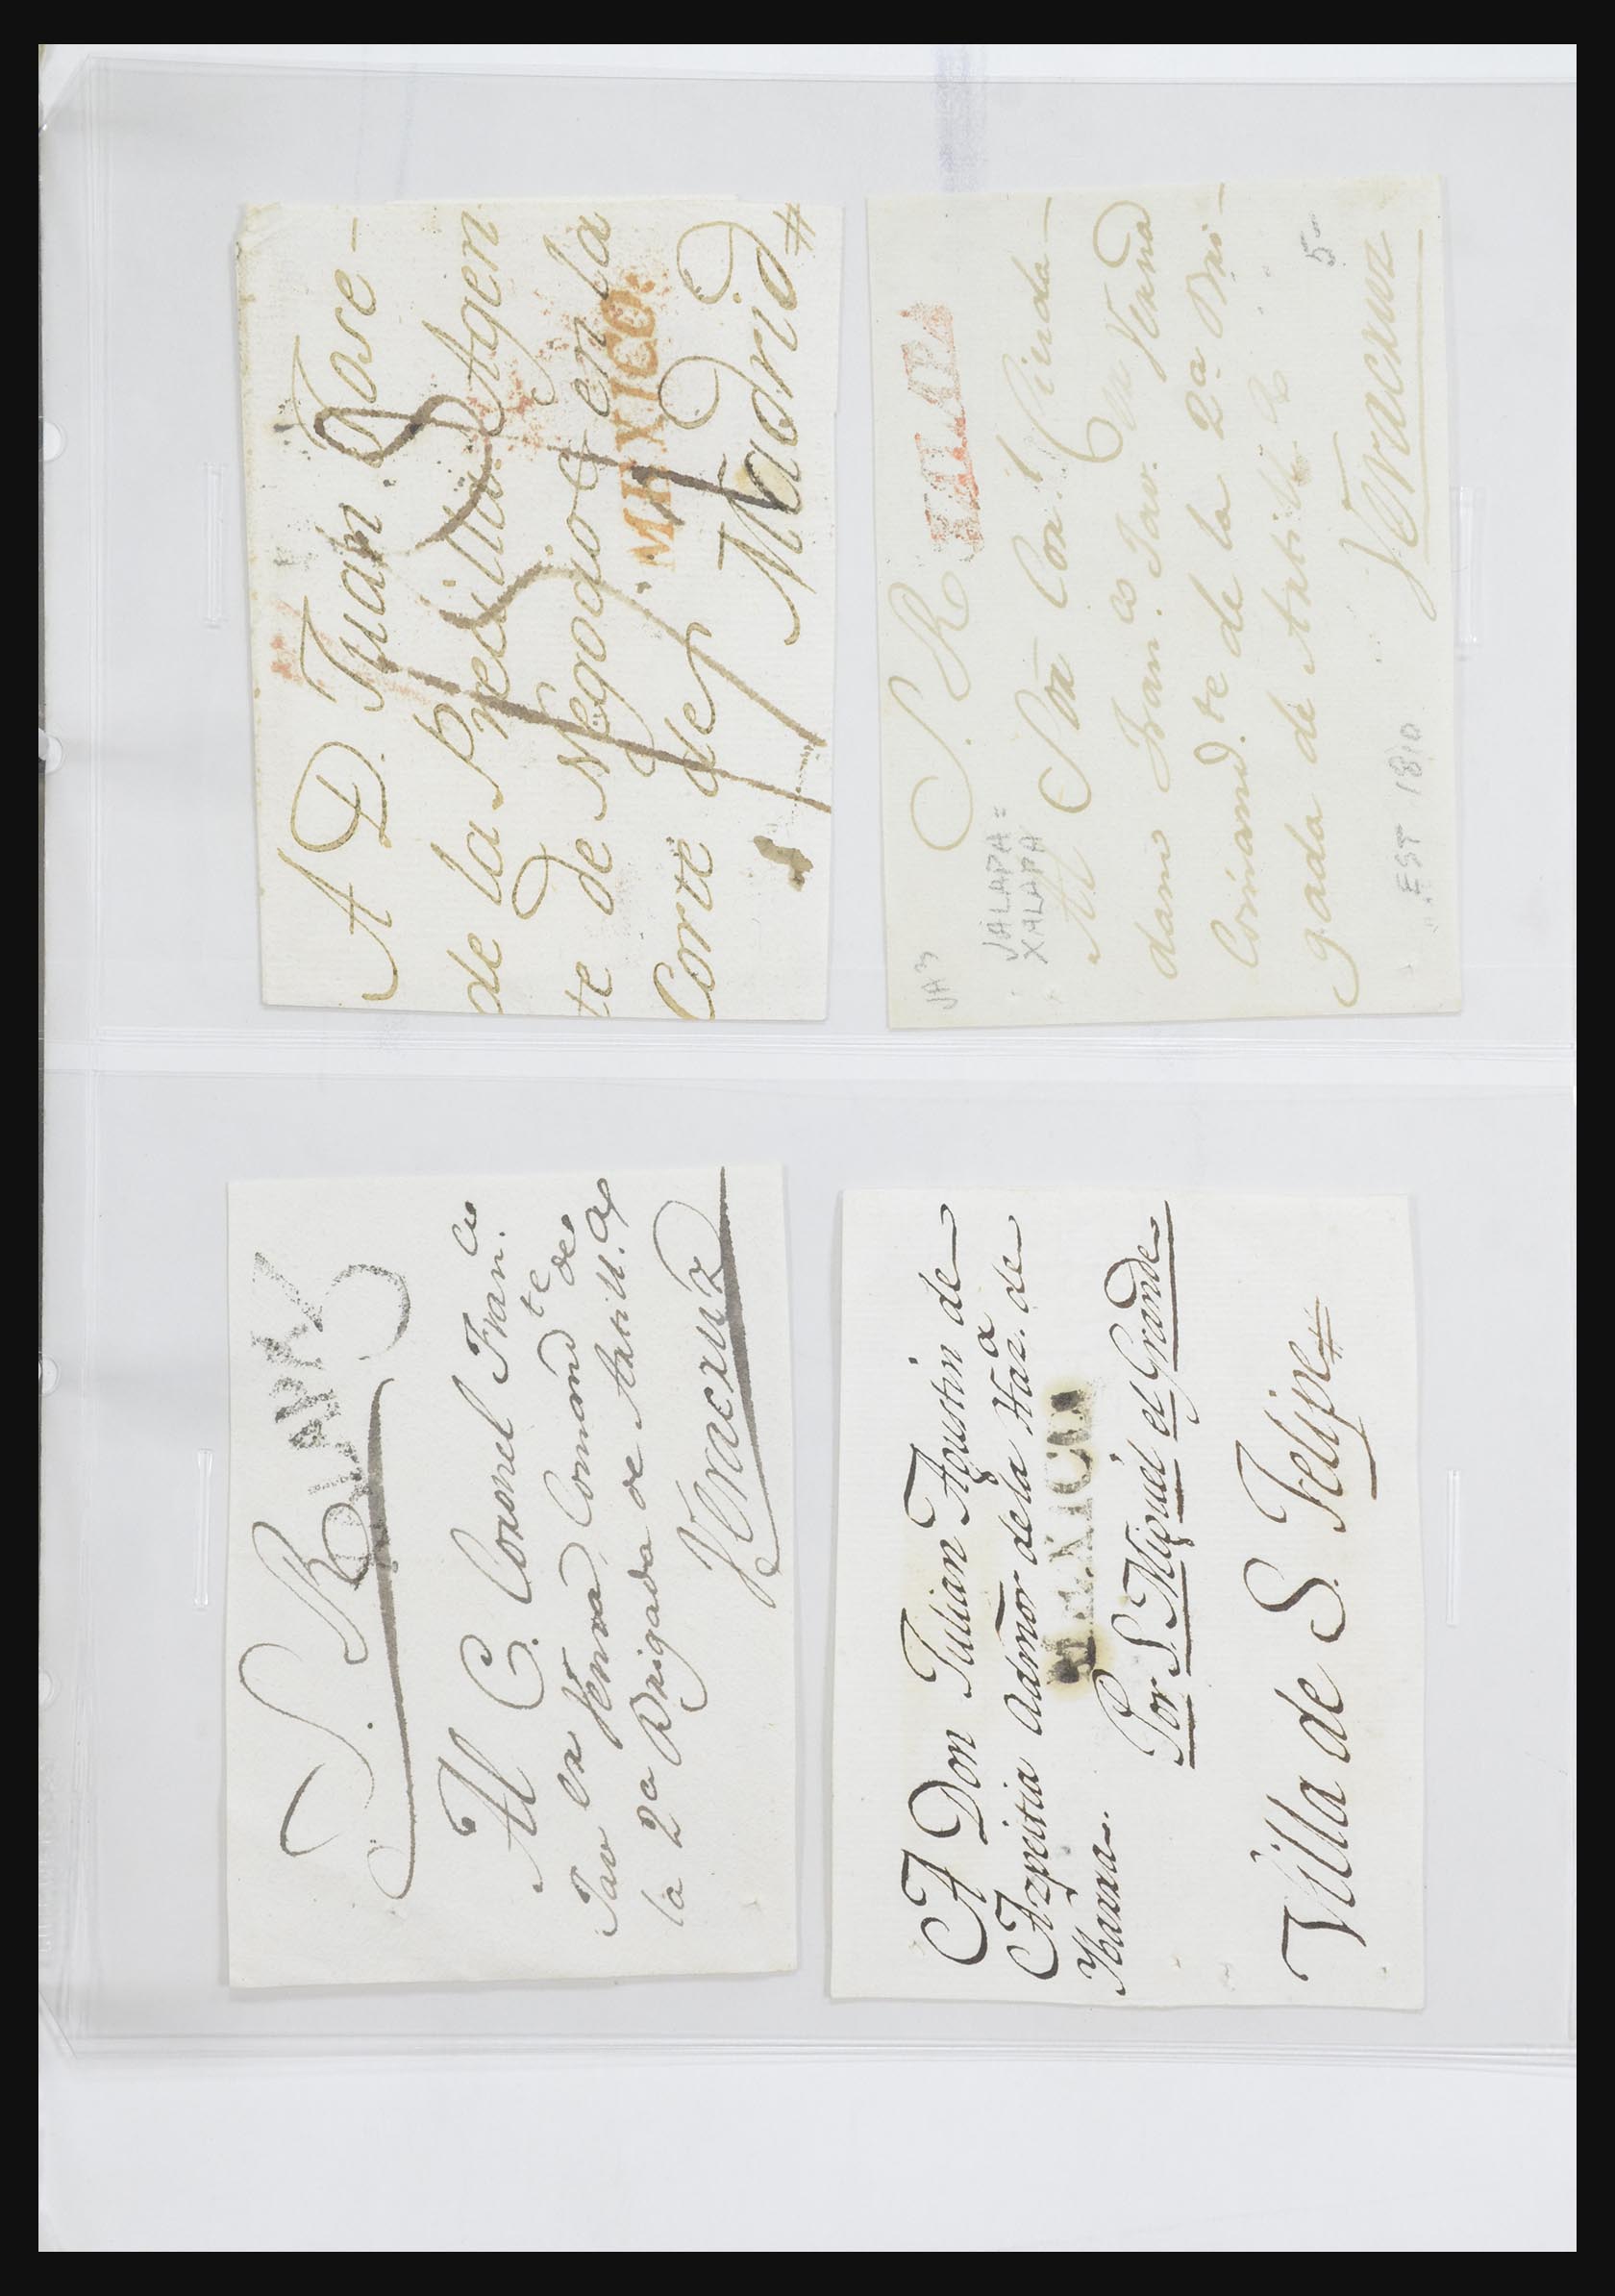 A D. Juan Jose
de la Predilla Agen
te de Negocios en la
MEXICO.
Corte de
Madrid#
S. R
XALAPA
JA3
JALAPA =
XALAPA
Al Sõr Con.l Ciuda-
dano Fran.co Jav.
Comand.te de la 2a Bri-
gada de Artill.a
5-
Veracruz
EST 1810
S. R
Al C. Coronel Fran.co
Jav er Comand.te de
la 2a Brigada de Artill.a
Veracruz
A Don Julian Agustin de
Azpeitia Admõr de la Haz.a de
MEXICO
Por S. Miguel el Grande
Villa de S. Felipe#